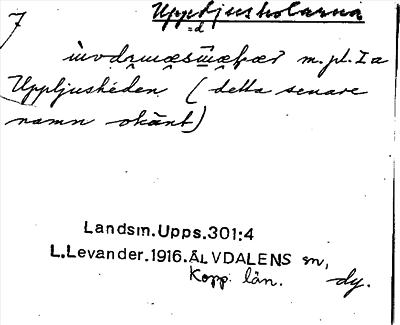 7
Uppljusholarna
=d
m. pl. I a
Uppljusheden (detta senare
namn okänt)
Landsm. Upps. 301:4
L. Levander. 1916. ÄLVDALENS sn,
Kopp. län.
dy.